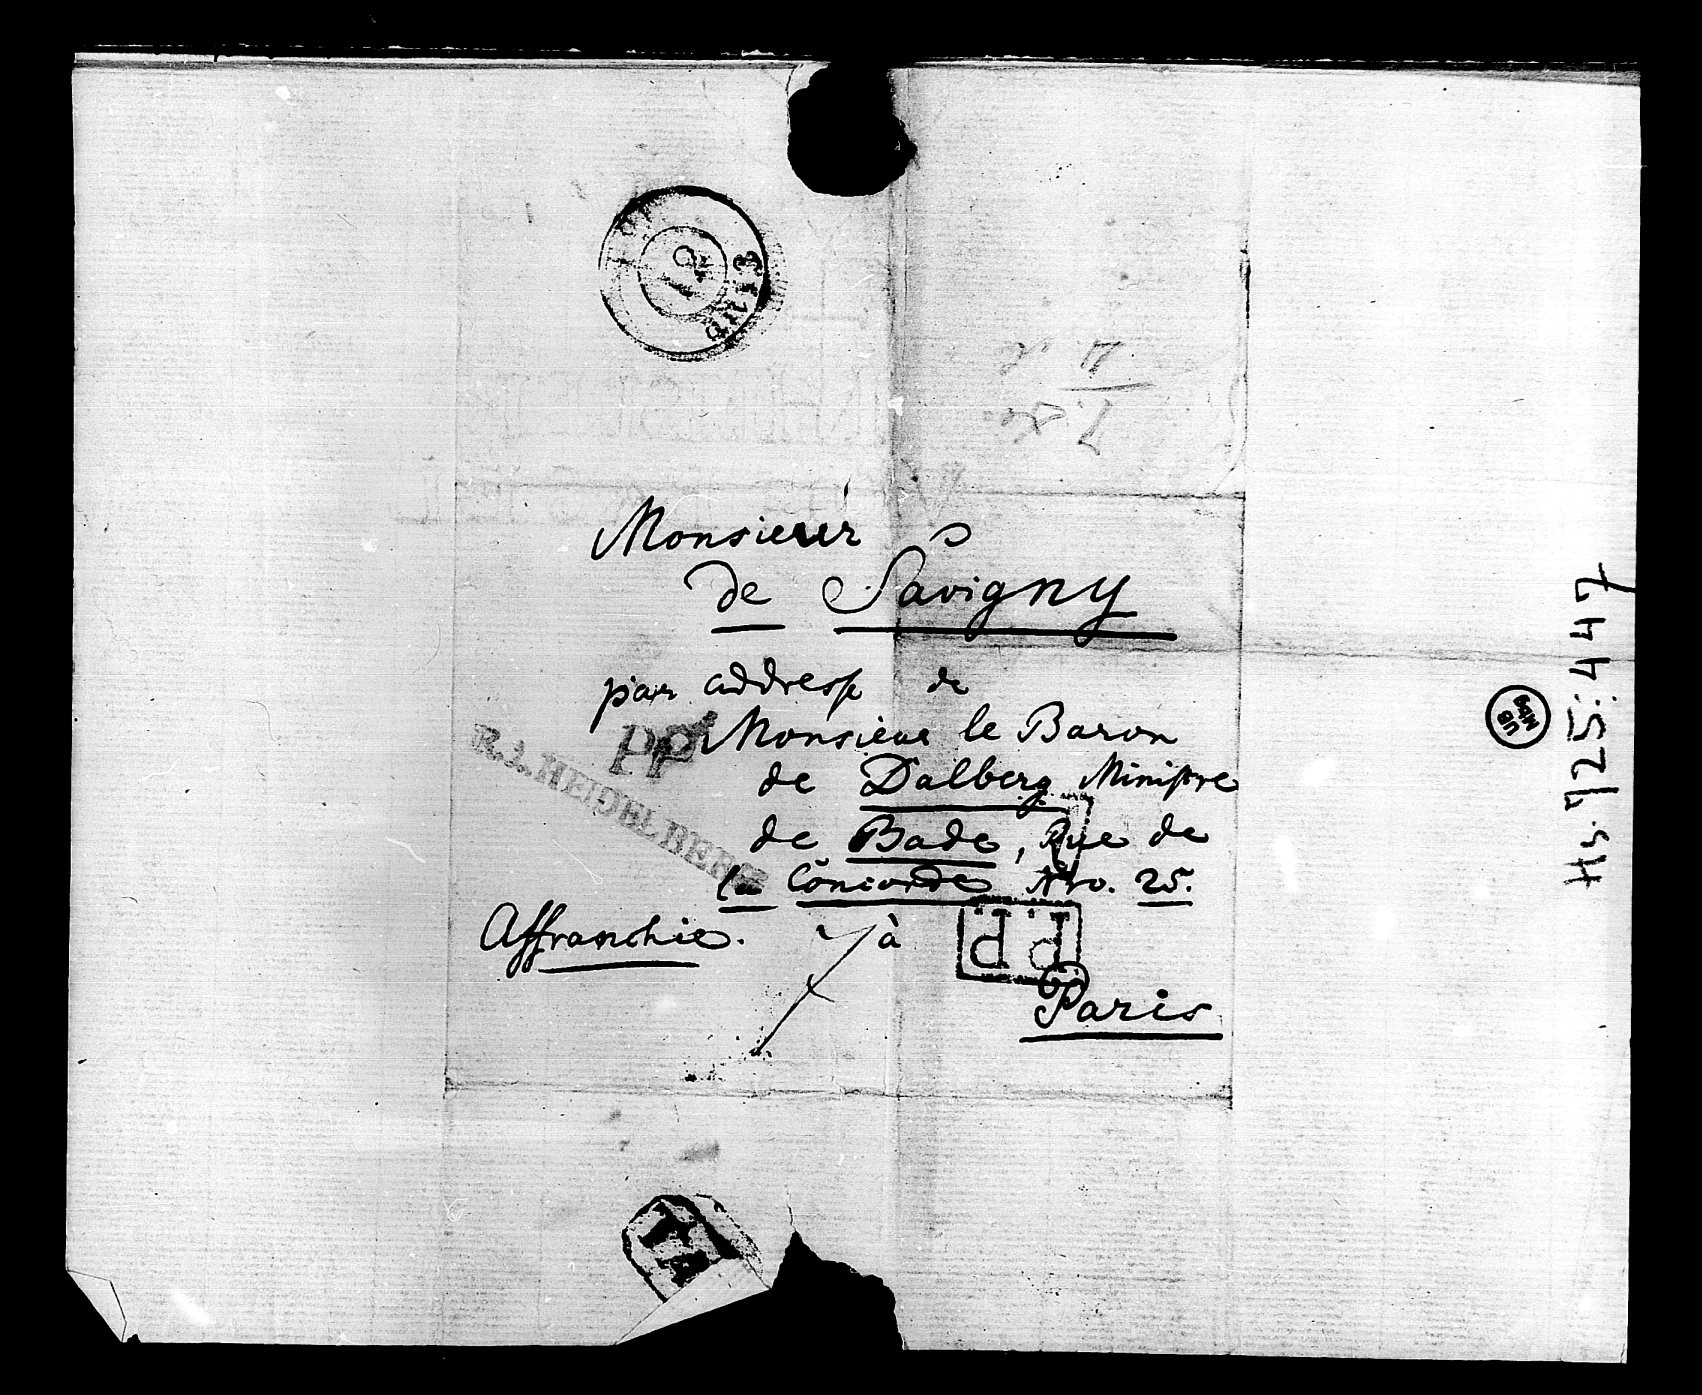 PARIS
Monsieur
de Savigny
par addresse de
Monsieur le Baron
de Dalberg Ministre
de Bade, Rue de
la Concorde Nro. 25.
Affranchie. à
Paris
PP
R.1. HEIDELBERG
P.P.
TA
Hs. 725:447
UB
MBG